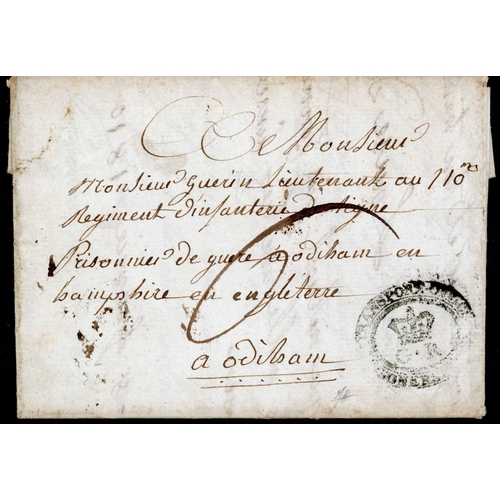 A Monsieur
Monsieur Guerin Lieutenant au 110me
Regiment d'infanterie de ligne
Prisonnier de guere a odiham en
hampshire en engleterre
a odiham
TRANSPORT OFFICE
G R
PRISONERS